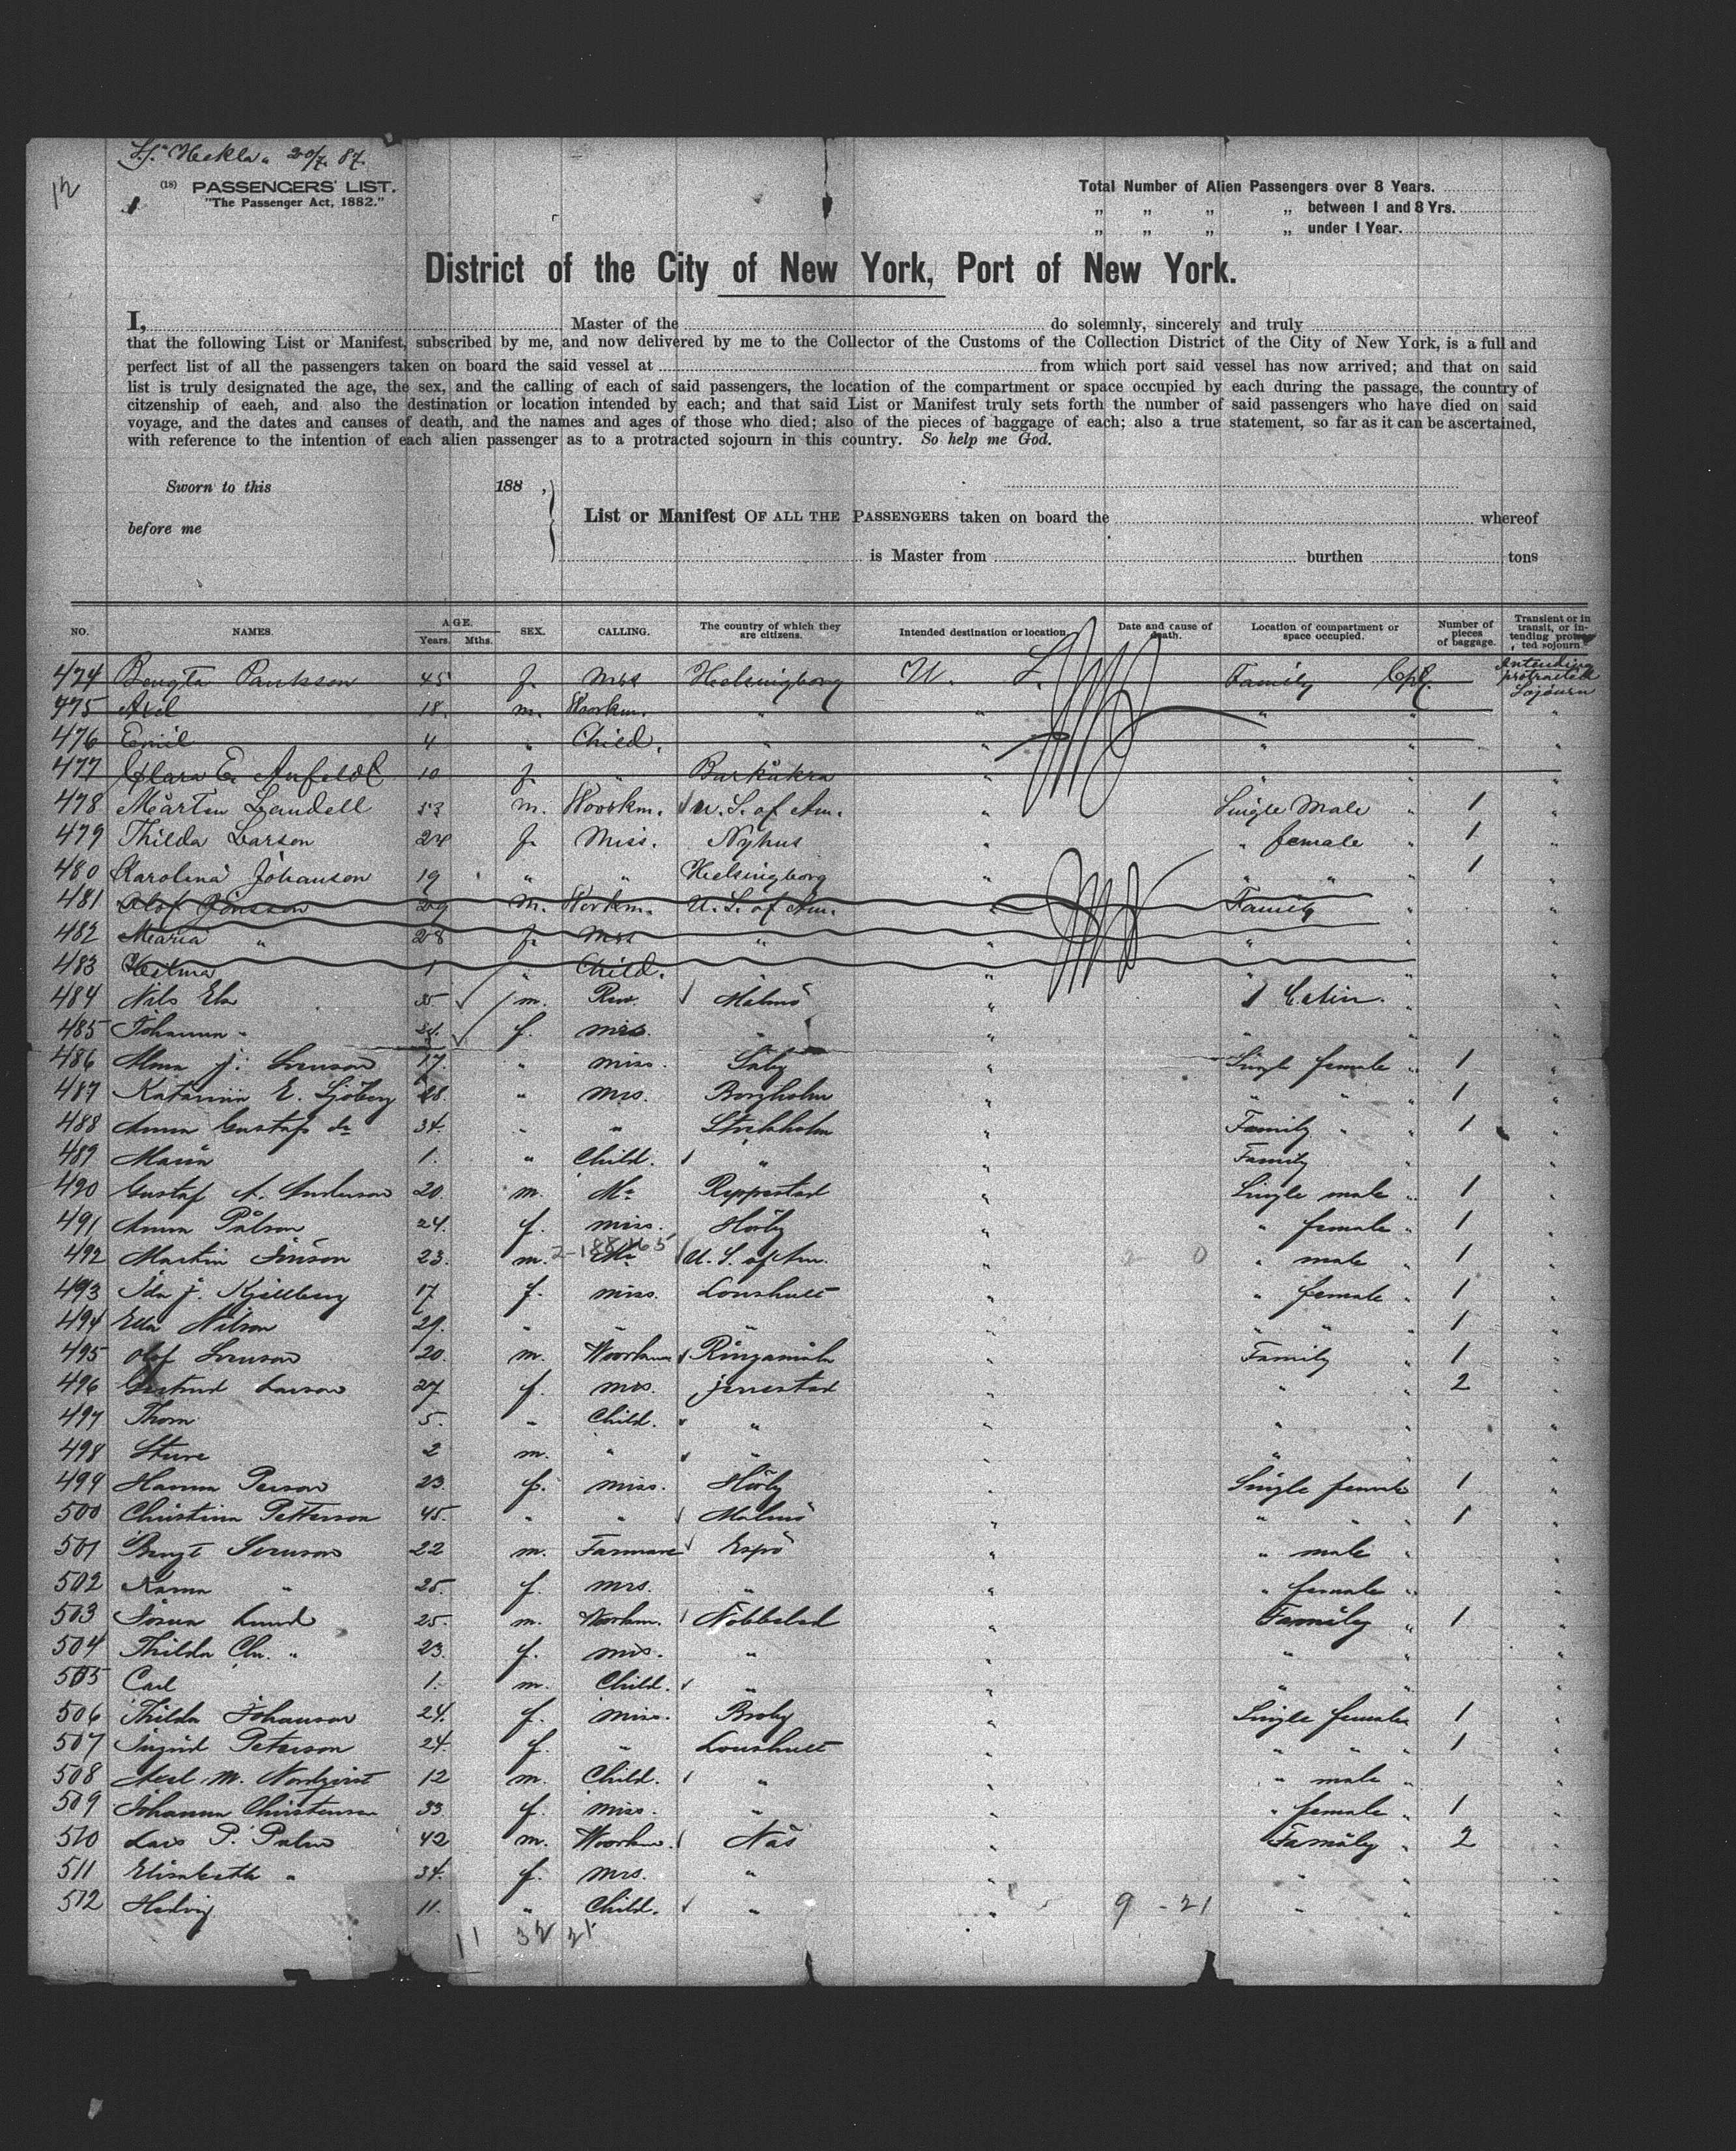 S.S. "Hekla" 20/7 87.
12
(18) PASSENGERS' LIST.
"The Passenger Act, 1882."
Total Number of Alien Passengers over 8 Years.
„ „ „ „ between 1 and 8 Yrs.
„ „ „ „ under 1 Year.
District of the City of New York, Port of New York.
I, Master of the do solemnly, sincerely and truly
that the following List or Manifest, subscribed by me, and now delivered by me to the Collector of the Customs of the Collection District of the City of New York, is a full and
perfect list of all the passengers taken on board the said vessel at from which port said vessel has now arrived; and that on said
list is truly designated the age, the sex, and the calling of each of said passengers, the location of the compartment or space occupied by each during the passage, the country of
citzenship of each, and also the destination or location intended by each; and that said List or Manifest truly sets forth the number of said passengers who have died on said
voyage, and the dates and causes of death, and the names and ages of those who died; also of the pieces of baggage of each; also a true statement, so far as it can be ascertained,
with reference to the intention of each alien passenger as to a protracted sojourn in this country. So help me God.
Sworn to this 188 ,
before me
List or Manifest OF ALL THE PASSENGERS taken on board the whereof
is Master from burthen tons
NO. NAMES. AGE. Years. Mths. SEX. CALLING. The country of which they are citizens. Intended destination or location. Date and cause of death. Location of compartment or space occupied. Number of pieces of baggage. Transient or in transit, or intending protracted sojourn.
474 Bengta Paulsson 45 f. Mrs Helsingborg U. S. Family Cpt. Intending protracted Sojourn
475 Axel 18. m. Woorkm. " " " " "
476 Emil 4 " Child. " " " " "
477 Clara E. Anfeldt 10 f. " Barkåkra " " " "
478 Mårten Landell 53 m. Woorkm. U. S. of Am. " Single Male " 1 "
479 Thilda Larson 24 f. Miss. Nyhus " " female " 1 "
480 Karolina Johanson 19 " " Helsingborg " " " " 1 "
481 Olof Jönsson 29 m. Workm. U. S. of Am. " Family " "
482 Maria " 28 f. Mrs " " " " "
483 Hilma 1 " Child. " " " " "
484 Nils Ek 35 m. Rev. Malmö " Cabin. " "
485 Johanna " f. mrs. " " " " "
486 Alma J. Svenson 17. " miss. Säby " Single female " 1 "
487 Katarina E. Sjöberg 28. " mrs. Borgholm " " " " 1 "
488 Anna Gustafs dr 34. " " Stockholm " Family " " 1 "
489 Maria 1. " Child. " " Family " "
490 Gustaf A. Anderson 20. m. Mr Reppestad " Single male " 1 "
491 Anna Pålson 24. f. miss. Hörby " " female " 1 "
2-188465
492 Martin Jönson 23. m. Mr U. S. of Am. " " male " 1 "
493 Ida J. Kjellberg 17. f. miss. Lönshult " " female " 1 "
494 Ella Nilson 29. " " " " " " " 1 "
495 Olof Svenson 20. m. Woorkman Ringamåla " Family " 1 "
496 Gertrud Larson 27 f. mrs. Jerrestad " " " 2 "
497 Thora 5. " Child. " " " " "
498 Sture 2 m. " " " " " "
499 Hanna Person 23. f. miss. Hörby " Single female 1 "
500 Christina Petterson 45. " " Malmö " " " " 1 "
501 Bengt Svenson 22 m. Farmare Espö " " male " "
502 Karna " 25. f. mrs. " " " female " "
503 Lund 25. m. Woorkm. Nöbbelöd " Familey " 1 "
504 Thilda Chr. " 23. f. mrs. " " " " "
505 Carl 1. m. Child. " " " " "
506 Thilda Johanson 24. f. miss. Broby " Single female 1 "
507 Ingrid Peterson 24. f. " Lönshult " " " 1 "
508 Axel M. Nordqvist 12 m. Child. " " " male " "
509 Johanna Christenson 33. f. miss. " " " female " 1 "
510 Lars P. Palm 42 m. Woorkm. Näs " Familey " 2 "
511 Elisabeth " 34. f. mrs. " " " " "
512 Hedvig 11. " Child. " " " " "
9 - 21
11 32 21